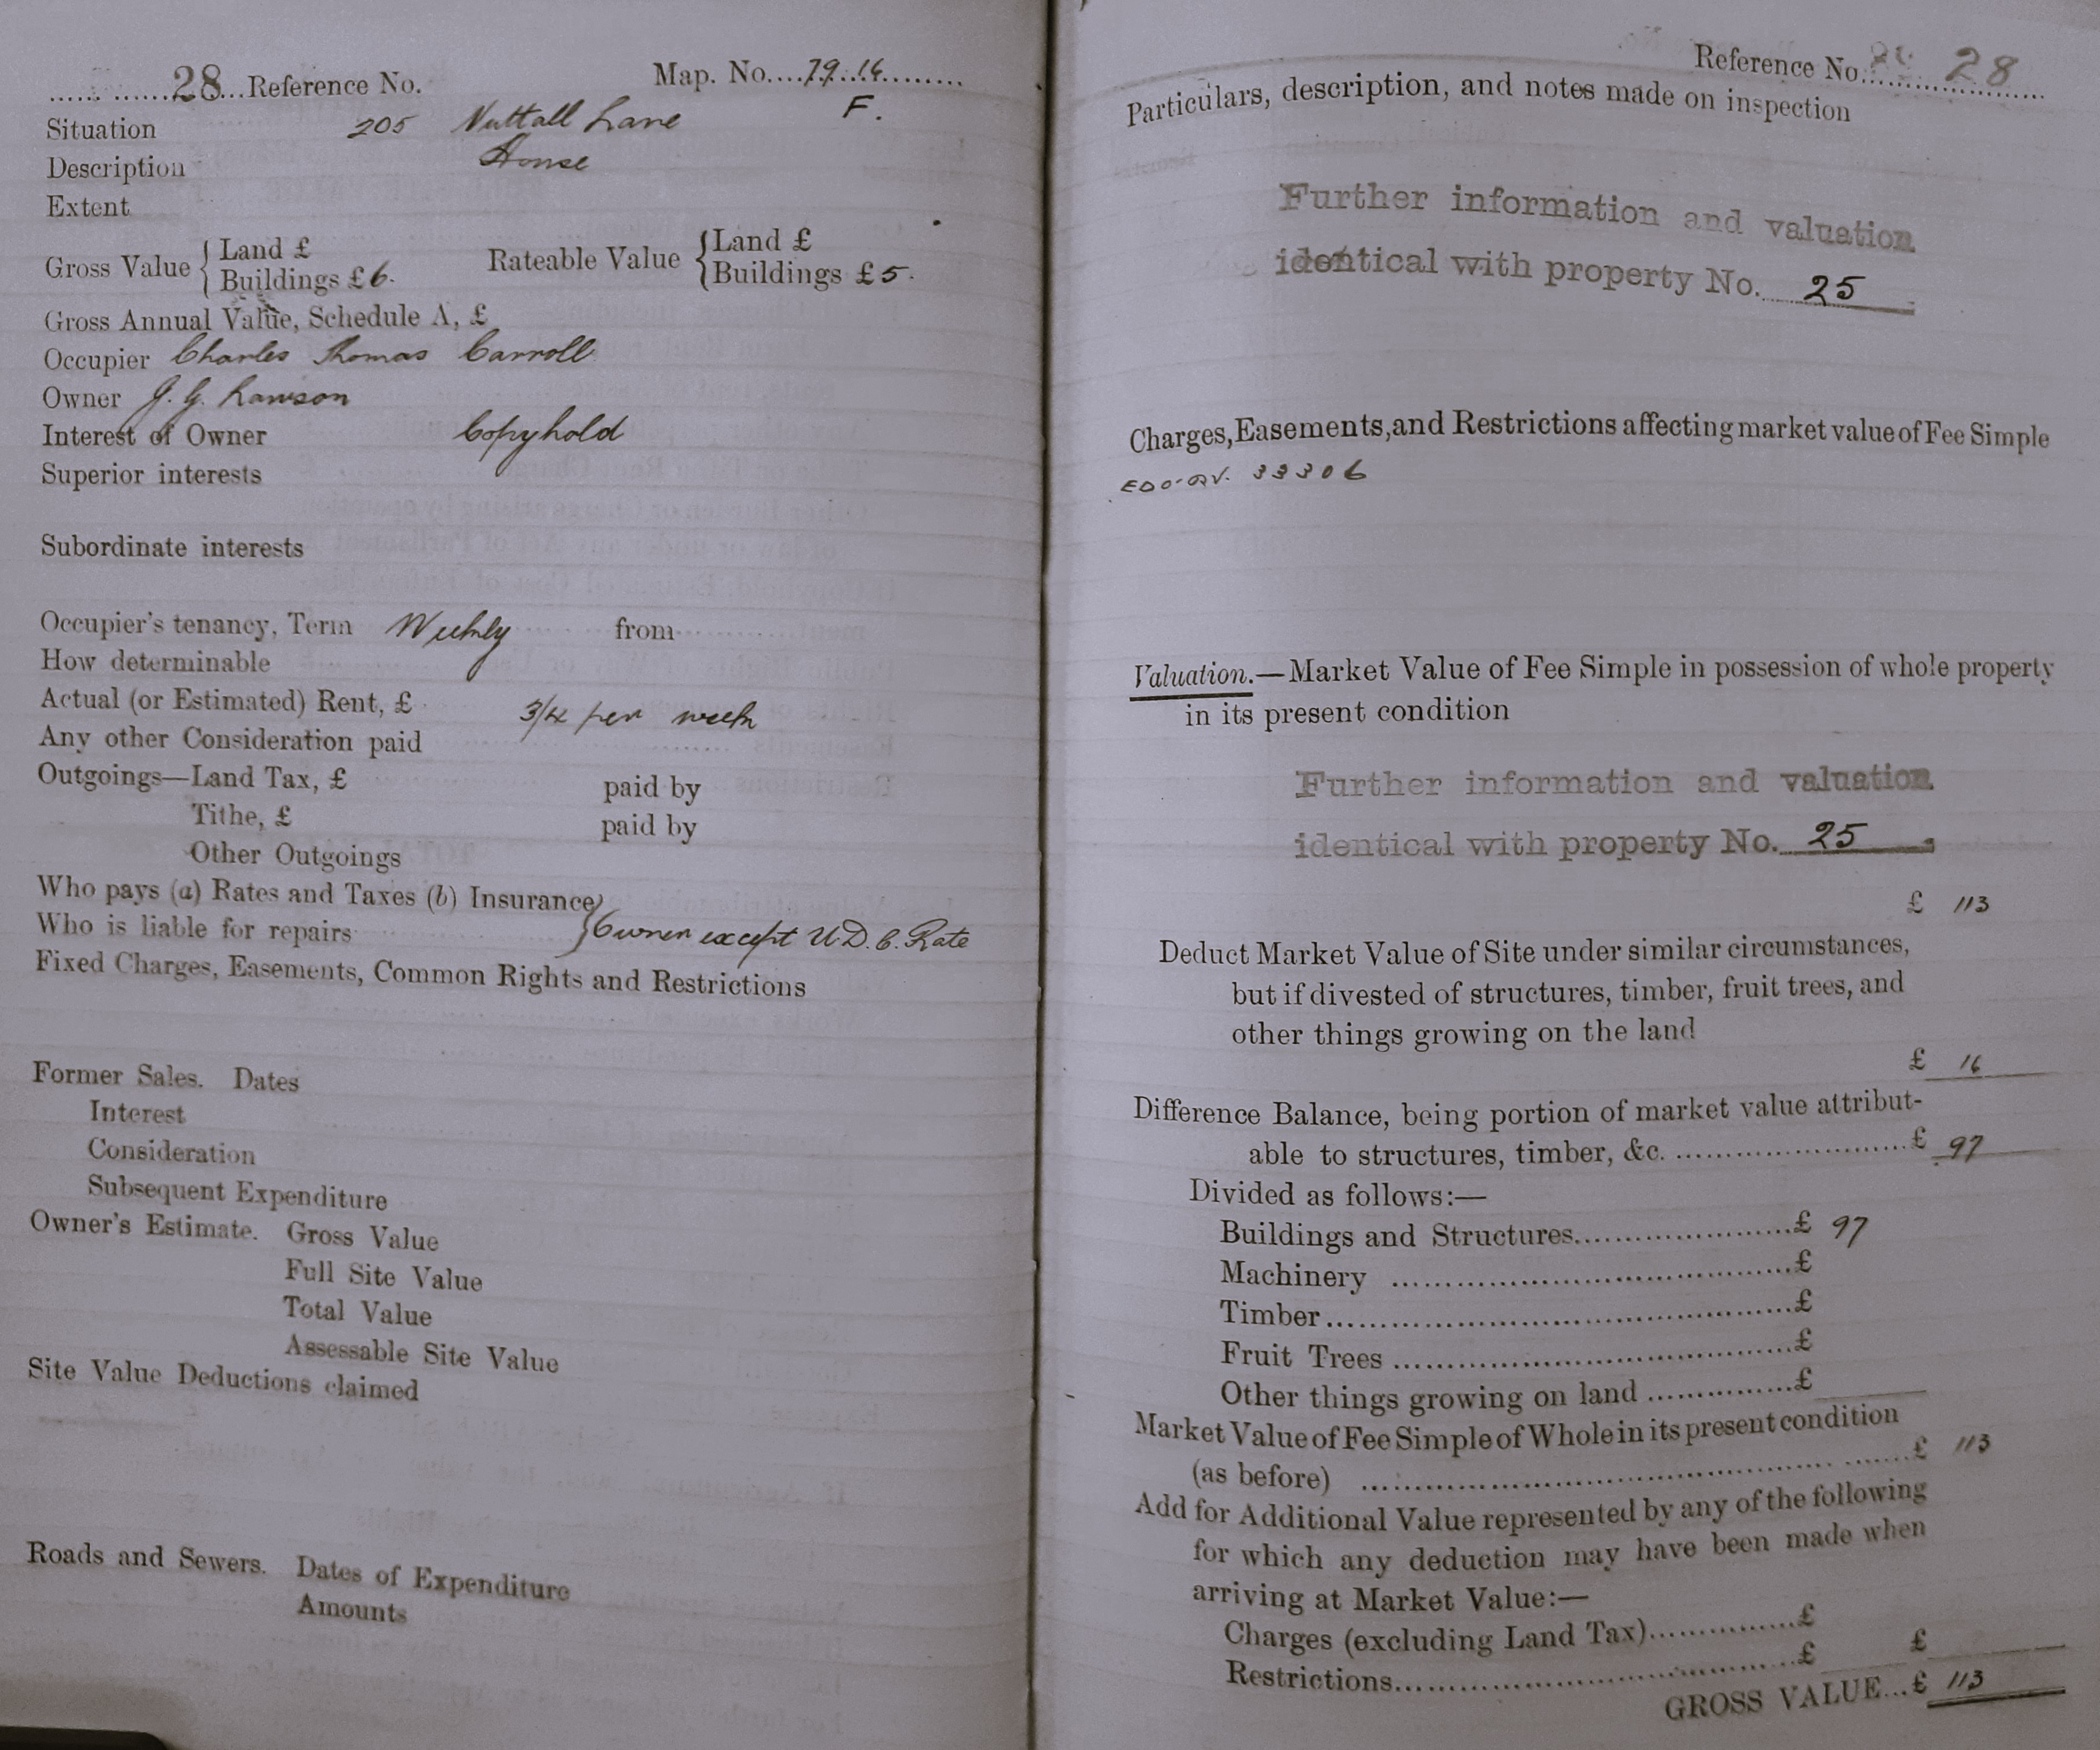 28 Reference No. Map. No. 79.14
Situation 205 Nuttall Lane F.
Description House
Extent
Gross Value { Land £ Rateable Value { Land £
Buildings £ 6. Buildings £ 5.
Gross Annual Value, Schedule A, £
Occupier Charles Thomas Carroll
Owner J. G. Lawson
Interest of Owner Copyhold
Superior interests
Subordinate interests
Occupier's tenancy, Term Weekly from
How determinable
Actual (or Estimated) Rent, £ 3/4 per week
Any other Consideration paid
Outgoings—Land Tax, £ paid by
Tithe, £ paid by
Other Outgoings
Who pays (a) Rates and Taxes (b) Insurance
Who is liable for repairs } Owner except U.D.C. Rate
Fixed Charges, Easements, Common Rights and Restrictions
Former Sales. Dates
Interest
Consideration
Subsequent Expenditure
Owner's Estimate. Gross Value
Full Site Value
Total Value
Assessable Site Value
Site Value Deductions claimed
Roads and Sewers. Dates of Expenditure
Amounts
Reference No. 28
Particulars, description, and notes made on inspection
Further information and valuation
identical with property No. 25
Charges, Easements, and Restrictions affecting market value of Fee Simple
33306
Valuation.—Market Value of Fee Simple in possession of whole property
in its present condition
Further information and valuation
identical with property No. 25
£ 113
Deduct Market Value of Site under similar circumstances,
but if divested of structures, timber, fruit trees, and
other things growing on the land
£ 16
Difference Balance, being portion of market value attribut-
able to structures, timber, &c. £ 97
Divided as follows:—
Buildings and Structures £ 97
Machinery £
Timber £
Fruit Trees £
Other things growing on land £
Market Value of Fee Simple of Whole in its present condition
(as before) £ 113
Add for Additional Value represented by any of the following
for which any deduction may have been made when
arriving at Market Value:—
Charges (excluding Land Tax) £
Restrictions £ £
GROSS VALUE... £ 113